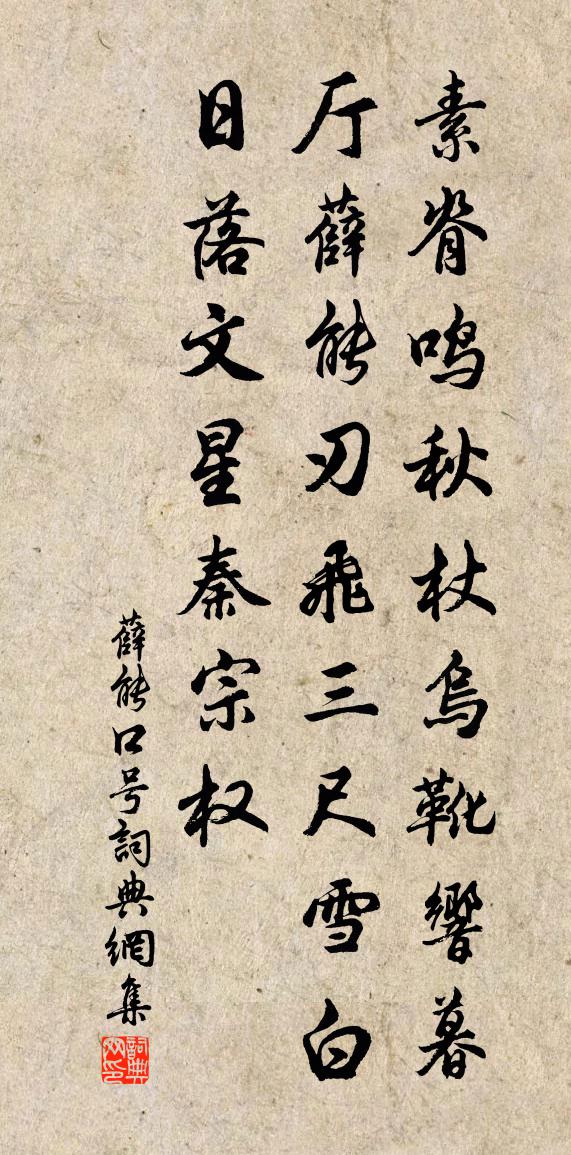 素脊鳴秋杖烏靴響暮
厅薛能刃飛三尺雪白
日落文星秦宗权
薛能口号詞典網集
詞典网印